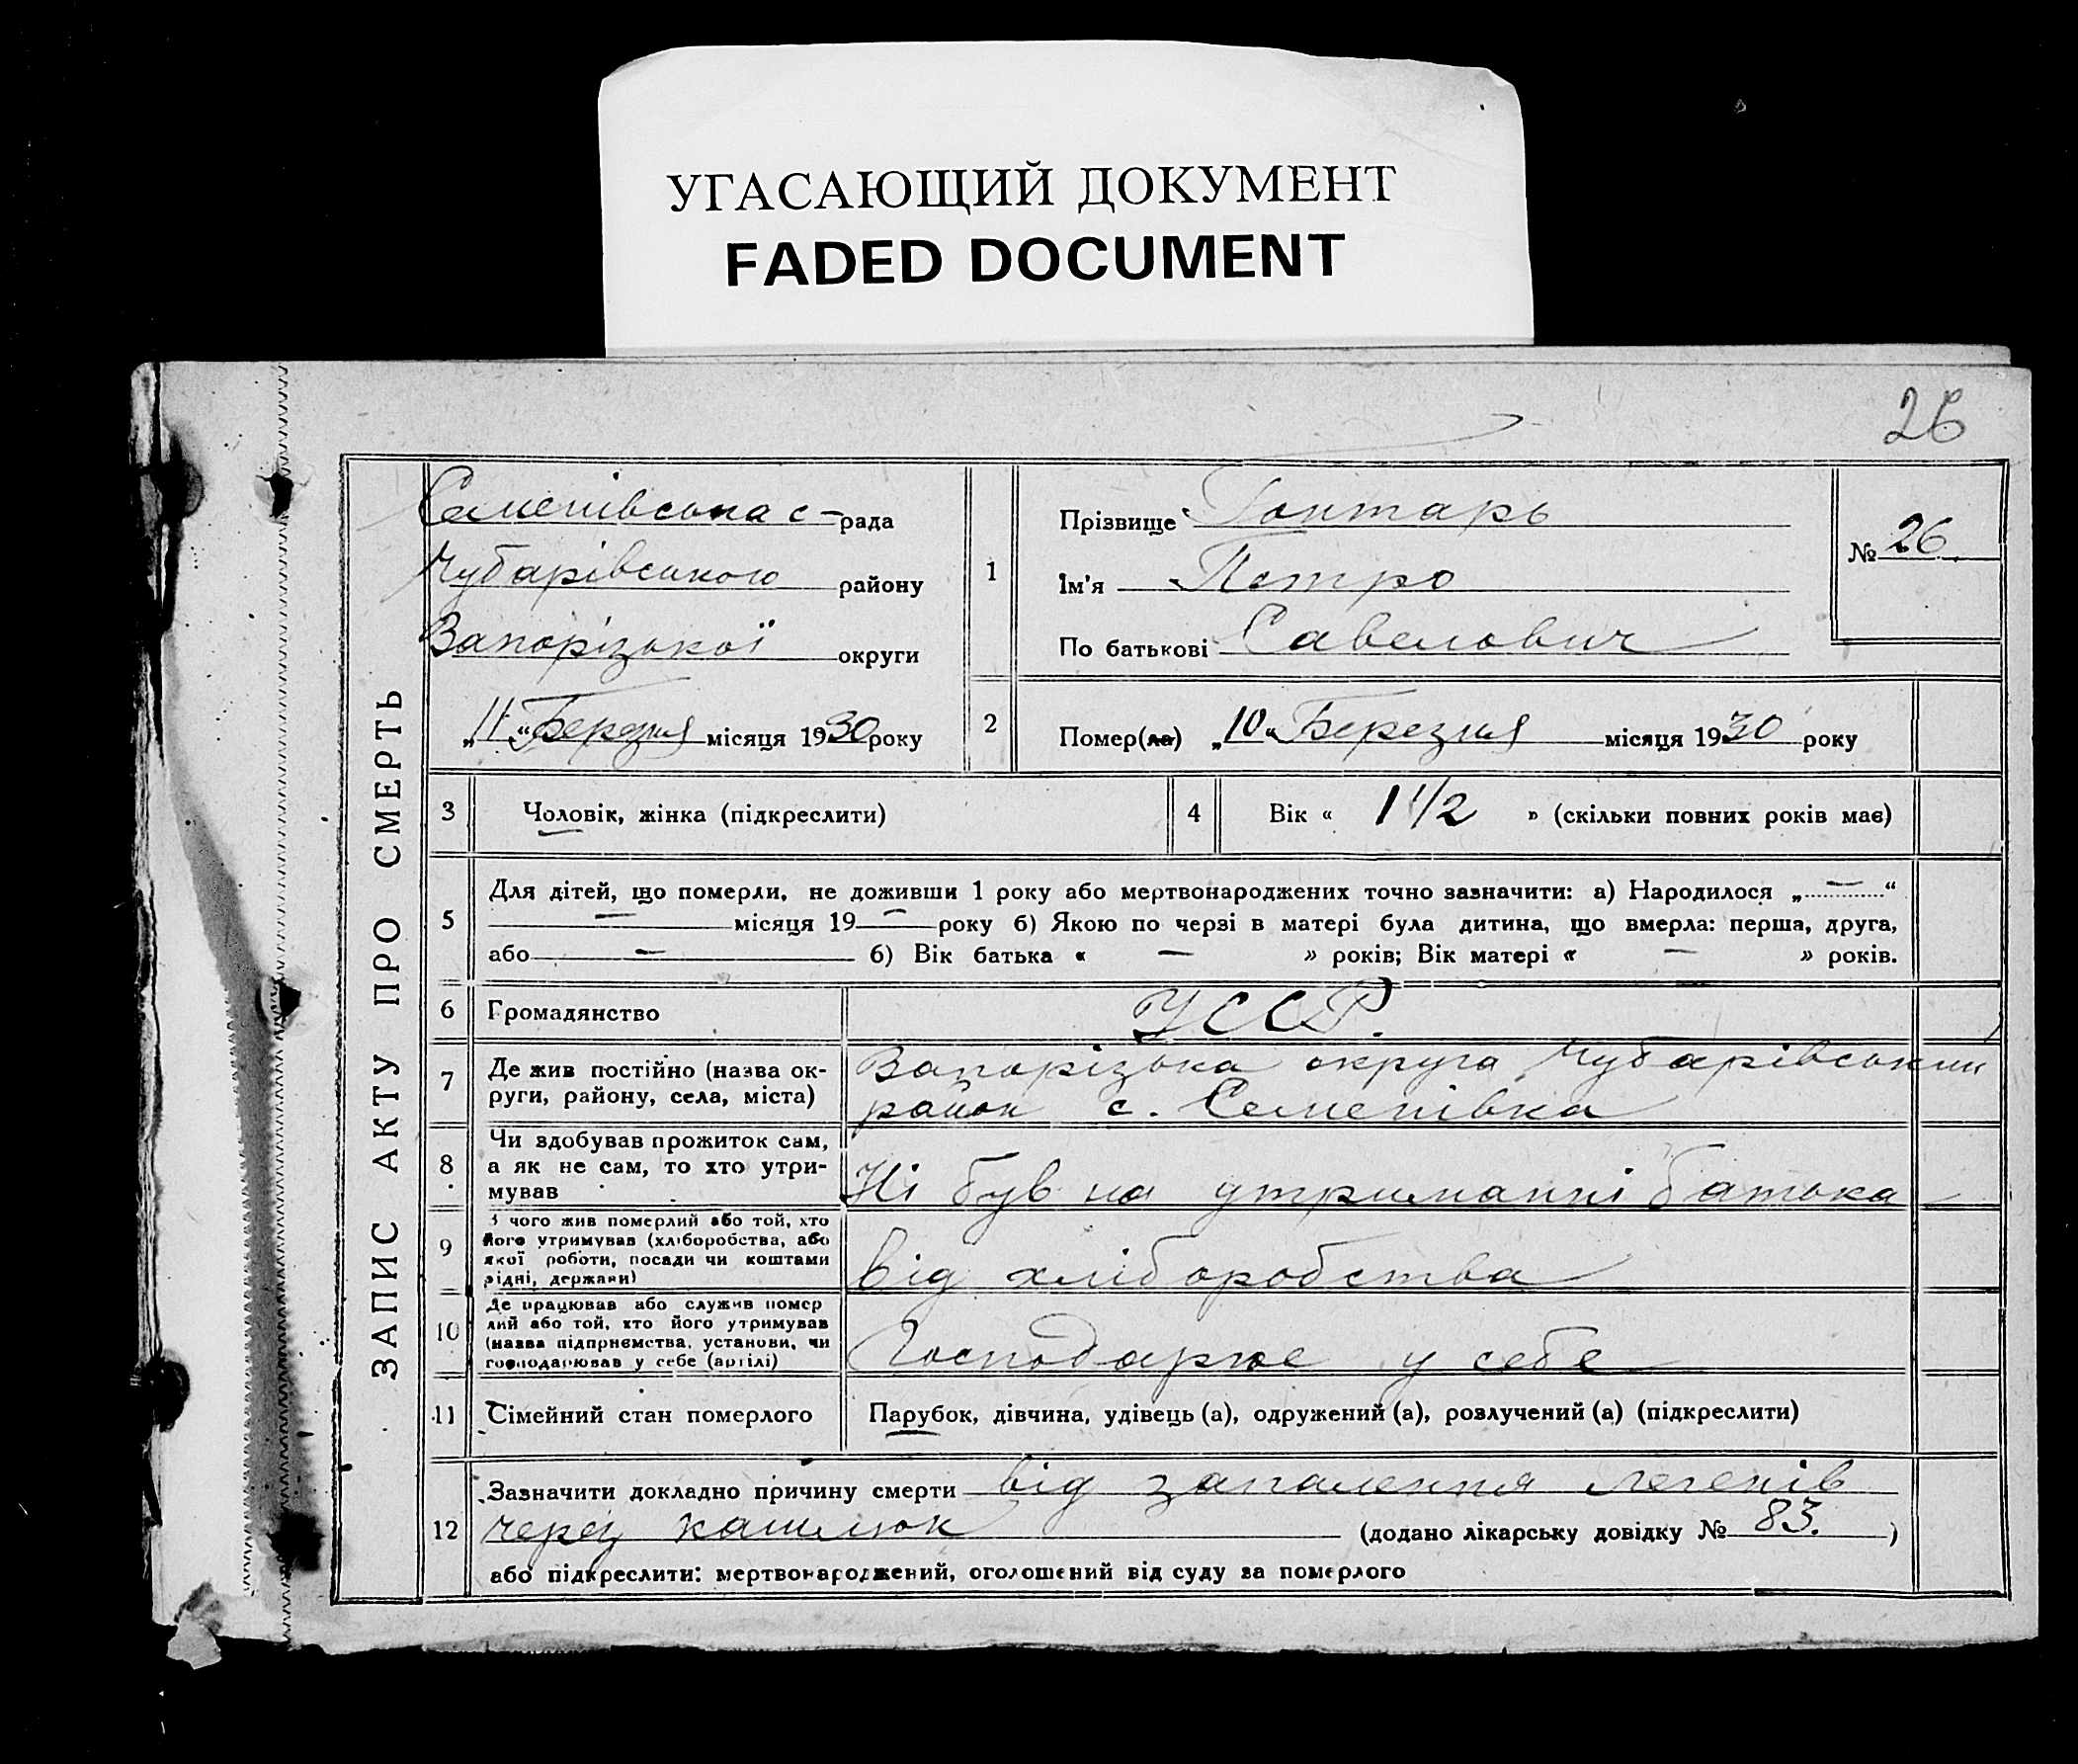 УГАСАЮЩИЙ ДОКУМЕНТ
FADED DOCUMENT
26
ЗАПИС АКТУ ПРО СМЕРТЬ
Семенівська с-рада
Чубарівського району
Запорізької округи
„11“ Березня місяця 1930 року
1
Прізвище Гонтарь
Ім'я Петро
По батькові Савелович
№ 26.
2
Помер(ла) „10“ Березня місяця 1930 року
3 Чоловік, жінка (підкреслити)
4 Вік « 1 1/2 » (скільки повних років має)
5
Для дітей, що померли, не доживши 1 року або мертвонароджених точно зазначити: а) Народилося „—“
— місяця 19— року б) Якою по черзі в матері була дитина, що вмерла: перша, друга,
або — б) Вік батька « — » років; Вік матері « — » років.
6 Громадянство УССР.
7
Де жив постійно (назва ок-
руги, району, села, міста)
Запорізька округа Чубарівський
район с. Семенівка
8
Чи здобував прожиток сам,
а як не сам, то хто утри-
мував
Ні був на утриманні батька
9
З чого жив померлий або той, хто
його утримував (хліборобства, або
якої роботи, посади чи коштами
рідні, держави)
від хліборобства
10
Де працював або служив помер
лий або той, хто його утримував
(назва підприємства, установи, чи
господарював у себе (артілі)
Господарює у себе
11 Сімейний стан померлого
Парубок, дівчина, удівець (а), одружений (а), розлучений (а) (підкреслити)
12
Зазначити докладно причину смерти від запалення легенів
через кашлюк (додано лікарську довідку № 83.)
або підкреслити: мертвонароджений, оголошений від суду за померлого